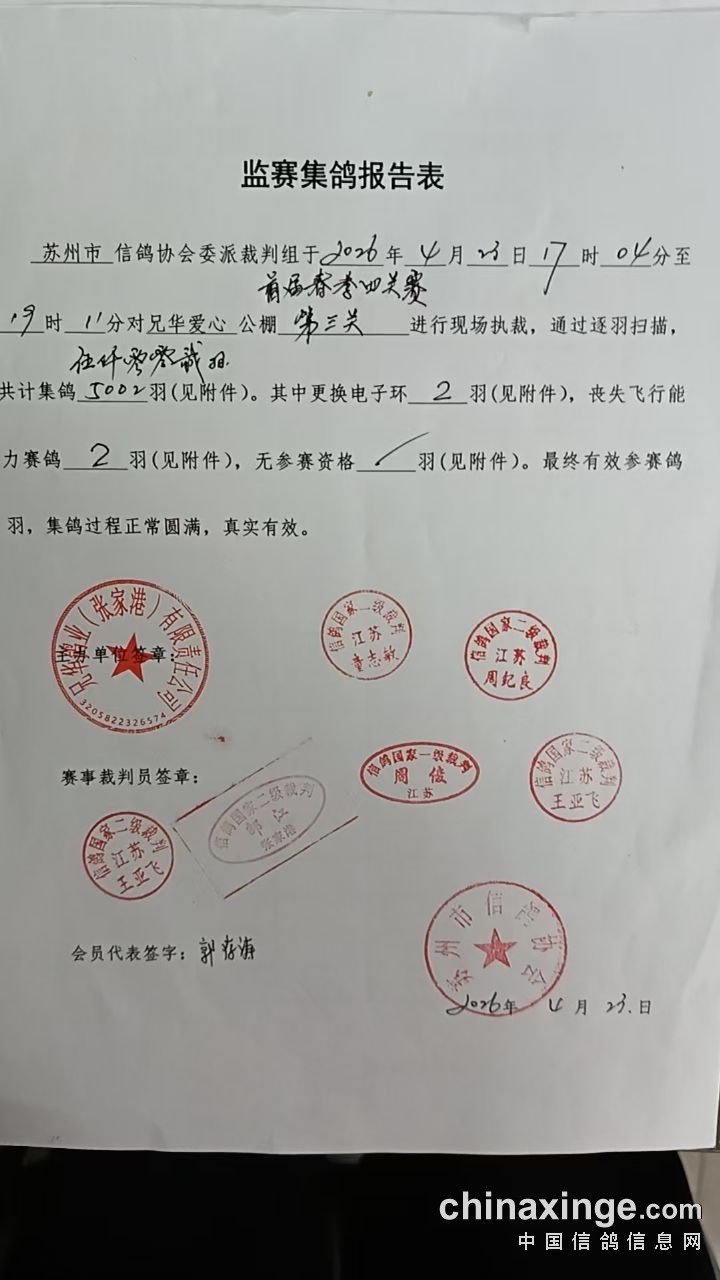 监赛集鸽报告表
苏州市 信鸽协会委派裁判组于 2026 年 4 月 23 日 17 时 04 分至
首届春季四关赛
19 时 11 分对兄华爱心 公棚 第三关 进行现场执裁，通过逐羽扫描，
伍仟零零贰羽
共计集鸽 5002 羽(见附件)。其中更换电子环 2 羽(见附件)，丧失飞行能
力赛鸽 2 羽(见附件)，无参赛资格 / 羽(见附件)。最终有效参赛鸽
羽，集鸽过程正常圆满，真实有效。
兄华鸽业（张家港）有限责任公司
3205822326574
主办单位签章：
信鸽国家二级裁判
江苏
童志敏
信鸽国家二级裁判
江苏
周纪良
赛事裁判员签章：
信鸽国家二级裁判
江苏
王亚飞
信鸽国家二级裁判
邹江
张家港
信鸽国家一级裁判
周俊
江苏
信鸽国家二级裁判
江苏
王亚飞
会员代表签字：郭存海
苏州市信鸽协会
2026 年 4 月 23 日
chinaxinge.com
中国信鸽信息网